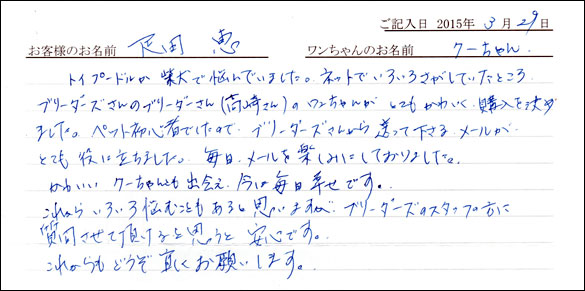 ご記入日 2015年 3月 29日
お客様のお名前 疋田 恵 ワンちゃんのお名前 クーちゃん
トイプードルか柴犬で悩んでいました。ネットでいろいろさがしていたところ
ブリーダーズさんのブリーダーさん(高崎さん)のワンちゃんが とてもかわいく購入を決め
ました。ペット初心者でしたので、ブリーダーズさんから送って下さるメールが
とても役に立ちました。毎日メールを楽しみにしておりました。
かわいい クーちゃんとも出会え、今は毎日幸せです。
これから いろいろ悩むこともあると思いますが、ブリーダーズのスタッフ方に
質問させて頂けると思うと 安心です。
これからもどうぞ宜しくお願いします。